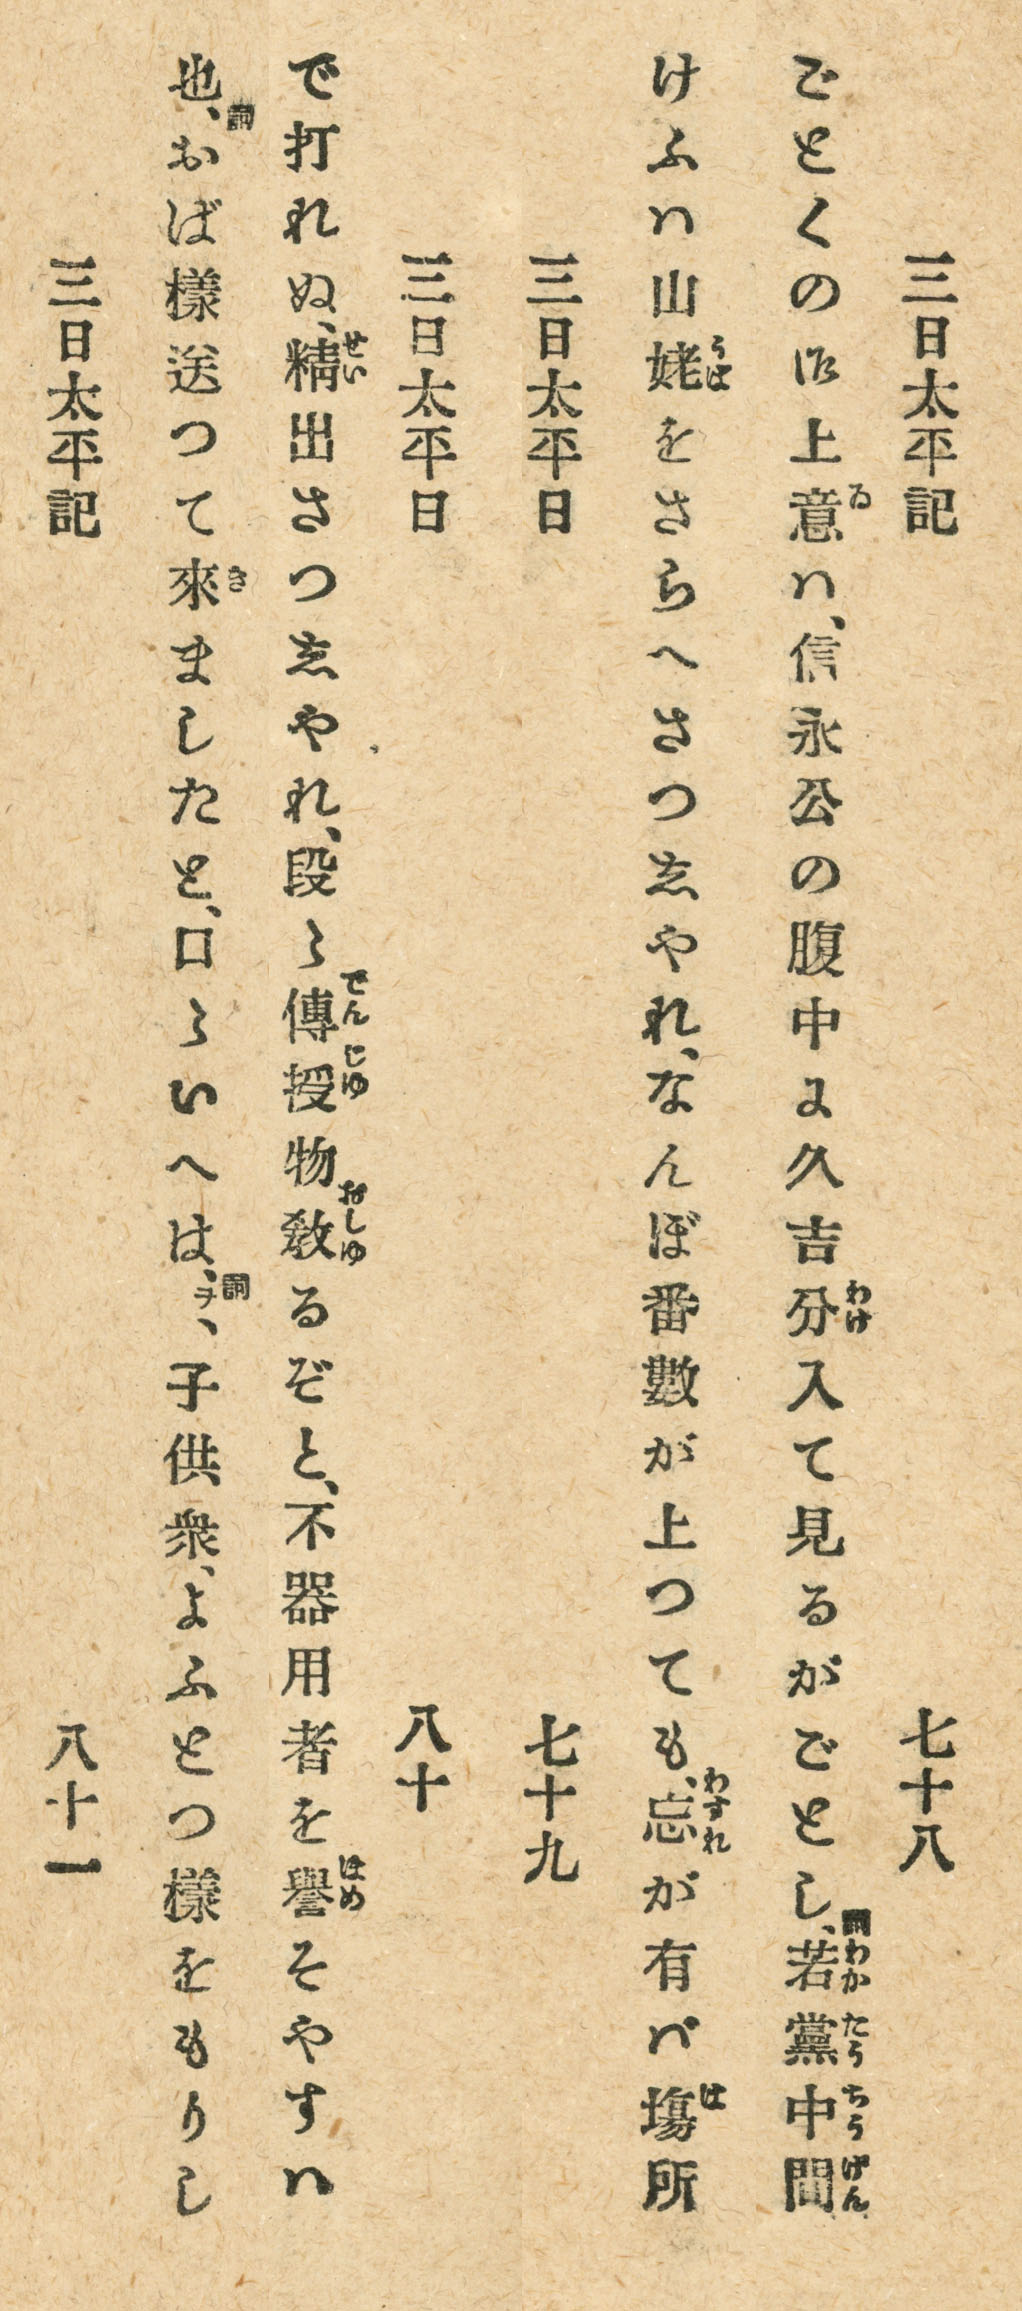 三日太平記 七十八
ごとくの御上意ハ、信永公の腹中に久吉分入て見るがごとし、詞若黨中間
けふハ山姥をさらへさつしやれ、なんぼ番數が上つても、忘が有バ塲所
三日太平日 七十九
三日太平日 八十
で打れぬ、精出さつしやれ、段〻傳授物敎るぞと、不器用者を譽そやすハ
也、詞おば樣送つて來ましたと、口〻いへは、詞ヲヽ、子供衆、よふとつ樣をもりし
三日太平記 八十一